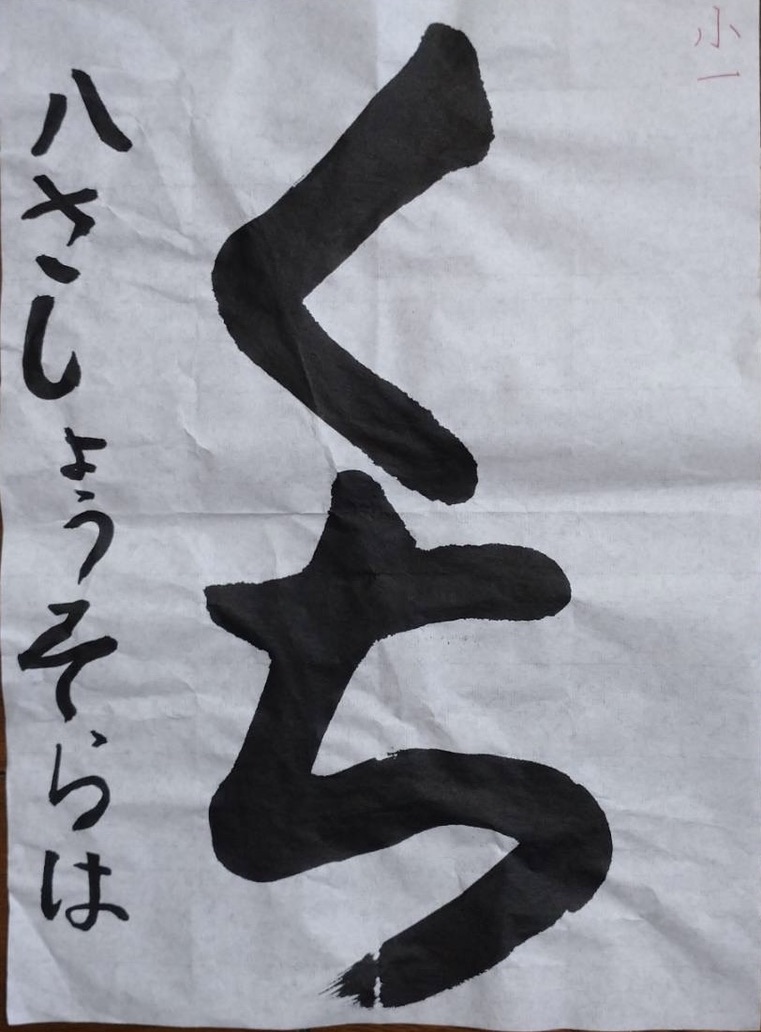 小一
くち
八さしょうそらは